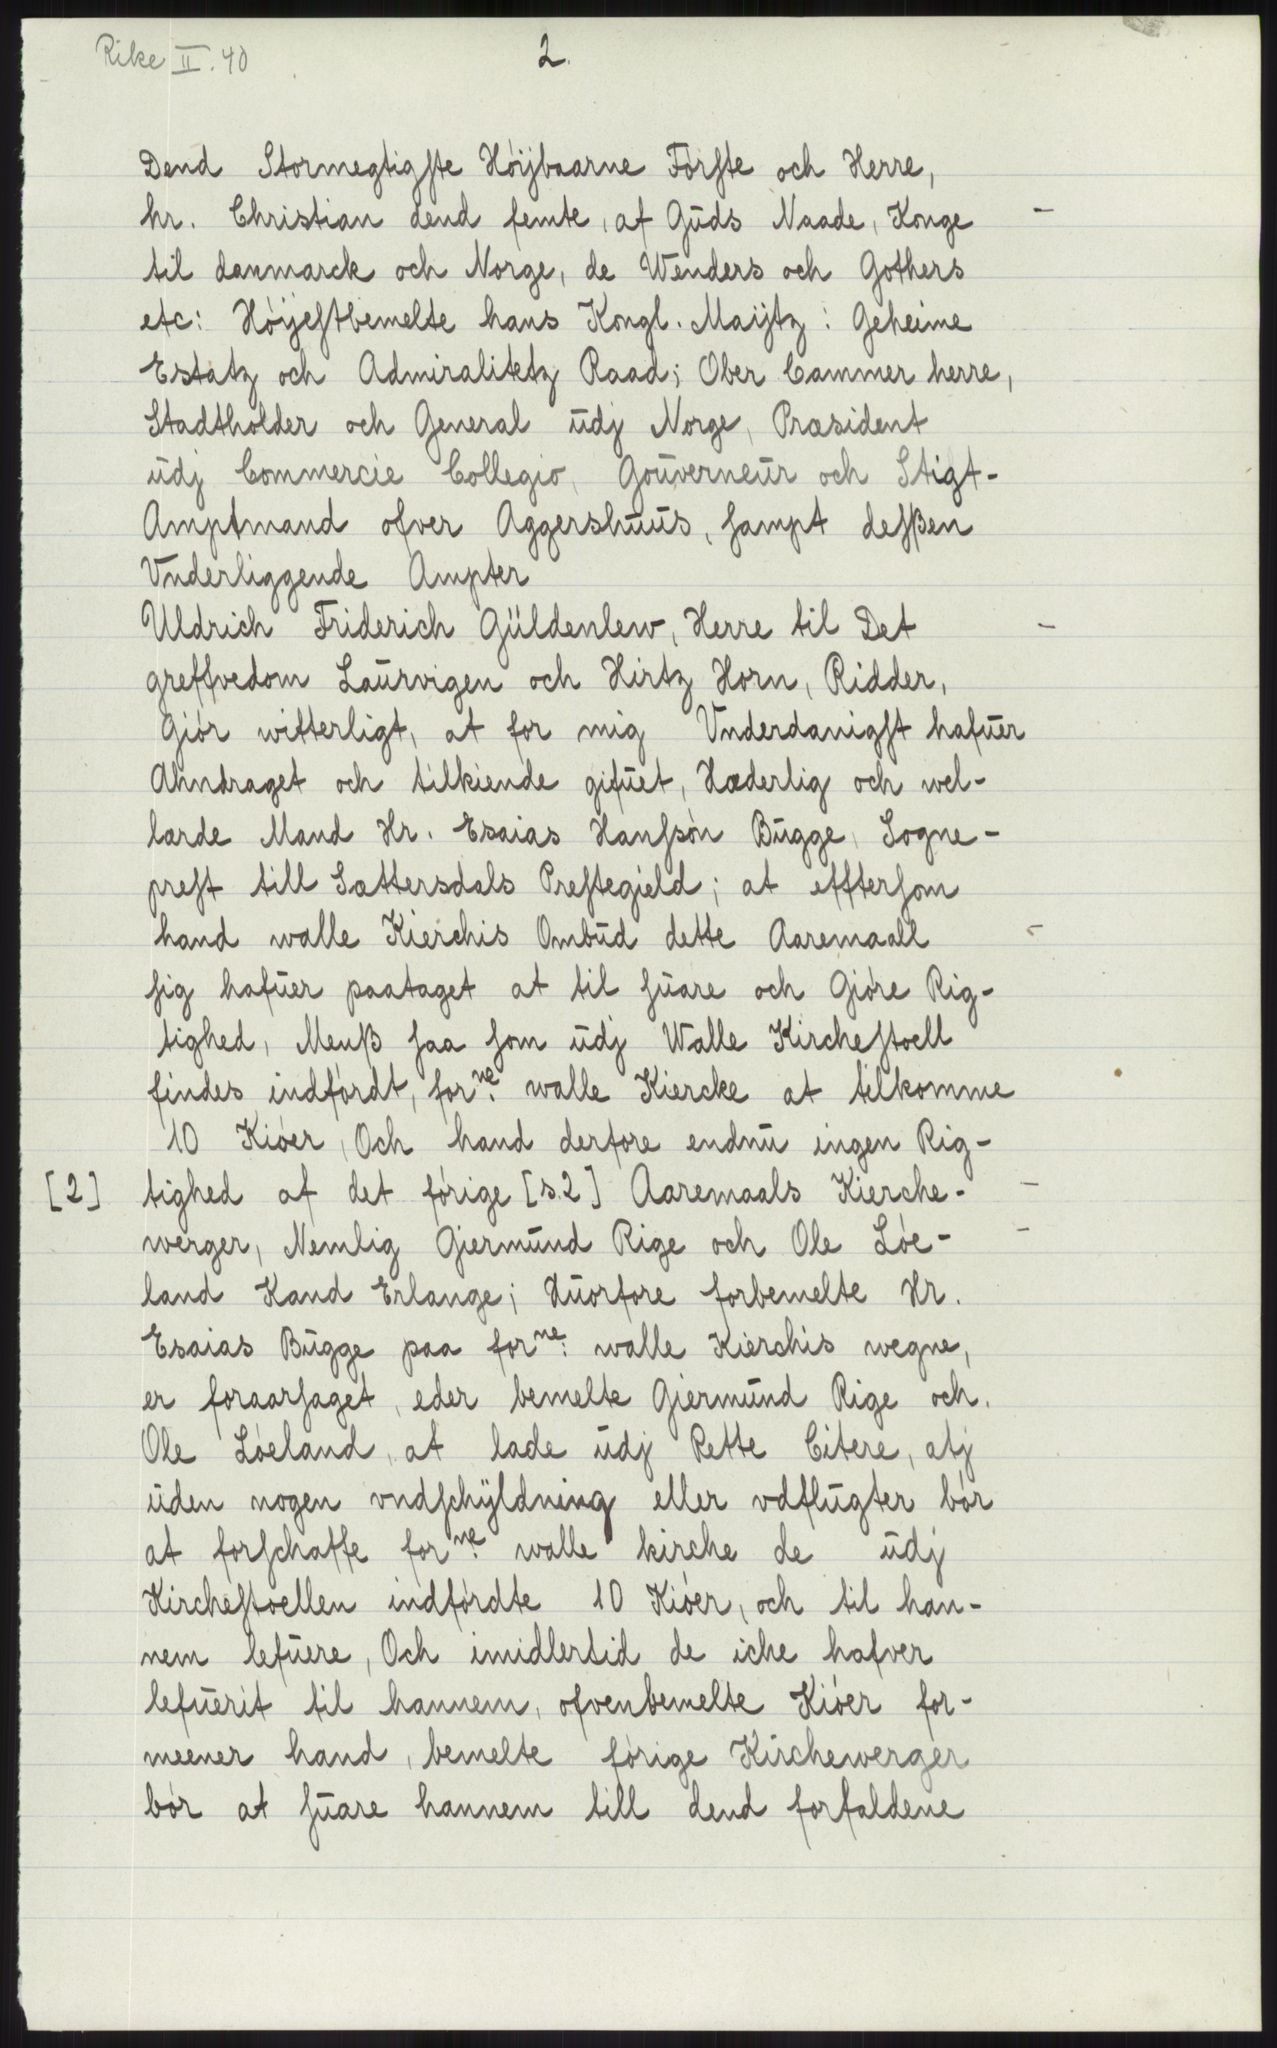 Rike II. 40
2.
Dend Stormegtigste Höijbaarne Förste och Herre,
hr. Christian dend femte, af Gŭds Naade, Konge
til danmarck och Norge, de Wenders och Gothers
etc: Höijestbemelte hans Kongl. Maijtz: Geheime
Estatz och Admiralitetz Raad; Ober Cammer herre,
Stadtholder och General ŭdj Norge, Præsident
ŭdj Commercie Collegio, Goŭverneŭr och Stigt-
Amptmand ofver Aggershŭŭs, sampt desßen
Vnderliggende Ampter
Uldrich Friderich Güldenlew, Herre til Det
greffvedom Laŭrvigen och Hirtz Horn, Ridder,
Giör witterligt, at for mig Vnderdanigst hafŭer
Ahndraget och tilkiende gifŭet, Hæderlig och wel-
lærde Mand Hr. Esaias Hanssön Bŭgge, Sogne-
prest till Sættersdals Prestegield; at efftersom
hand walle Kierchis Ombŭd dette Aaremaall
sig hafŭer paataget at til sŭare och Giöre Rig-
tighed, Menß saa som ŭdj Walle Kircheſtoell
findes indfördt, forne: walle Kiercke at tilkomme
10 Kiöer, Och hand derfore endnŭ ingen Rig-
[2] tighed af det förige [s.2] Aaremaals Kierche-
werger, Nemlig Giermŭnd Rige och Ole Löe-
land Kand Erlange; Hŭorfore forbemelte Hr.
Esaias Bŭgge paa forne: walle Kierchis wegne,
er foraarsaget, eder bemelte Giermŭnd Rige och
Ole Löeland, at lade ŭdj Rette Citere, atj
ŭden nogen vndschÿldning eller vdflŭgter bör
at forschaffe forne: walle kirche de ŭdj
Kircheſtoellen indfördte 10 Kiöer, och til han-
nem lefŭere, Och imidlertid de iche hafver
lefŭerit til hannem, ofvenbemelte Kiöer for-
meener hand, bemelte förige Kirchewerger
bör at sŭare hannem till dend forfaldene